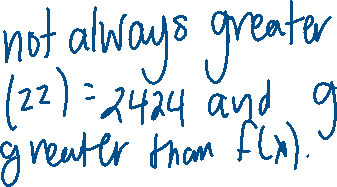 not always greater
(22) = 2424 and g
greater than f(x).